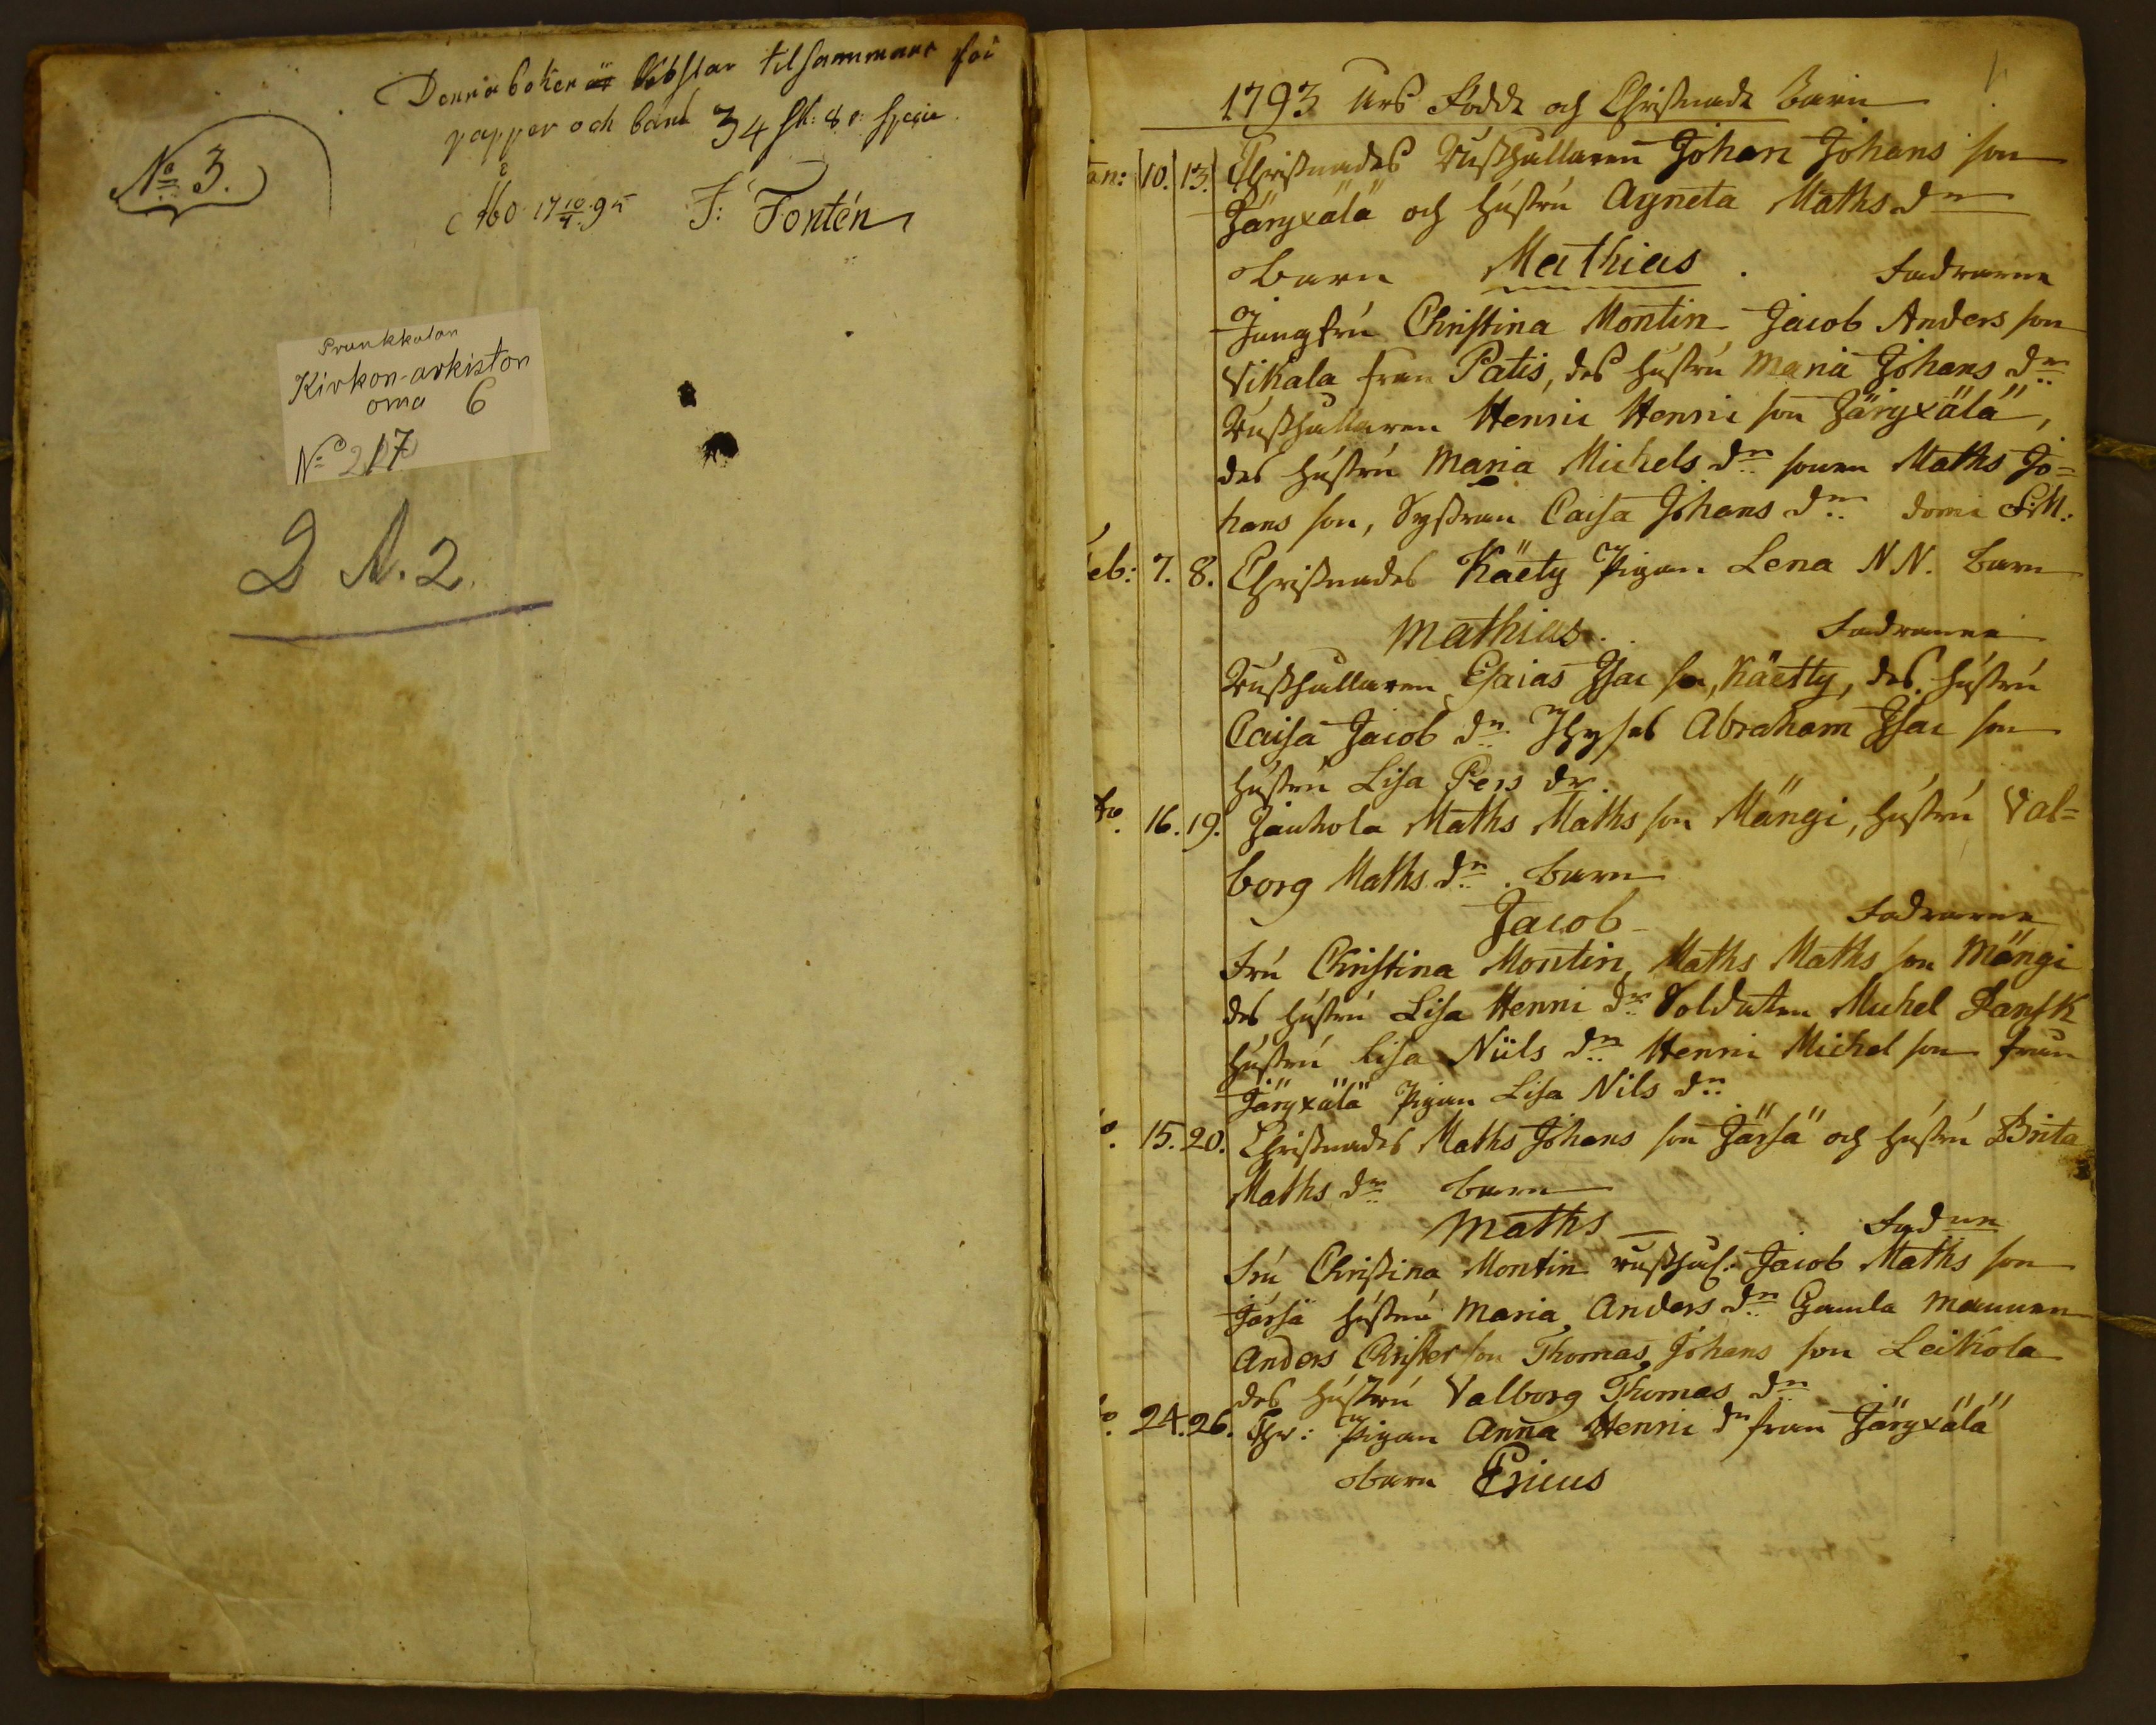 Denna boken är kåstar tilsammans för
papper och band 34 sk: 8 r: specie.
No 3.
Åbo 17 10/4 95 F: Fontén
Prunkkalan
Kirkon-arkiston
oma 6
No 217
2 A. 2.
1.
1793 års Födde och Christnade Barn
Jan: 10. 13. Christnades Rusthållaren Johan Johans son
Järyxälä och hustru Agneta Maths dr
barn Mathias. Faddrarne
Jungfru Christina Montin, Jacob Anders son
Vikala från Patis, des hustru Maria Johans dr
Rusthållaren Henric Henric son Järyxälä,
des hustru Maria Michels dr sonen Maths Jo=
hans son, Systran Caisa Johans dr domi F:M:
Feb: 7. 8. Christnades Käety Pigan Lena N N. barn
Mathias. Faddrarne
Rusthållaren Esaias Isac son, Käetty, des hustru
Caisa Jacob dr Abraham Isac son
hustru Lisa Pers dr.
to. 16. 19. Jauhola Maths Maths son Mängi, hustru Val=
borg Maths dr. barn
Jacob Faddrarne
Fru Christina Montin, Maths Maths son Mängi
des hustru Lisa Henric dr Soldaten Michel Dansk
hustru Lisa Niils dr Henric Michel son från
Järyxälä Pigan Lisa Nils dr
o. 15. 20. Christnades Maths Johans son Järsä och hustru Brita
Maths dr barn
Maths Faddrarne
Fru Christina Montin rusthål: Jacob Maths son
Järsä hustru Maria Anders dr Gamla mannen
Anders Christer son Thomas Johans son Leikola
des hustru Valborg Thomas dr
o. 24. 26. Chr: Pigan Anna Henric dr från Järyxälä
barn Ericus